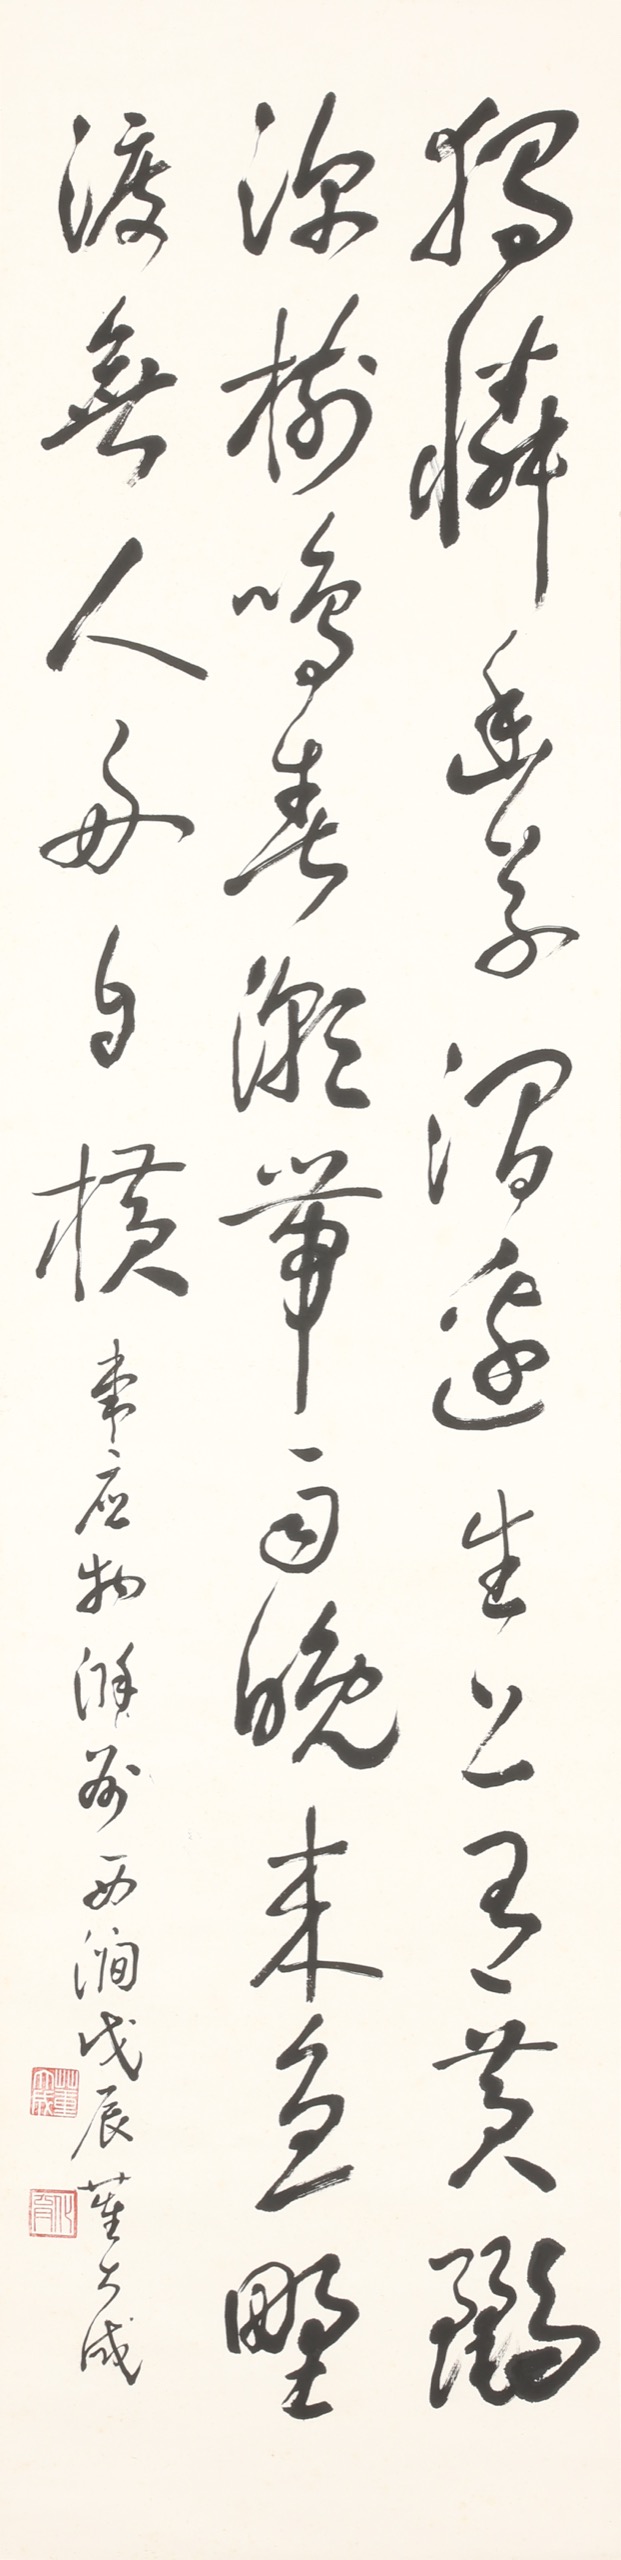 獨憐幽草澗邊生上有黃鸝
深樹鳴春潮帶雨晚來急野
渡無人舟自橫 韋應物滁州西澗戊辰董大成
董大成